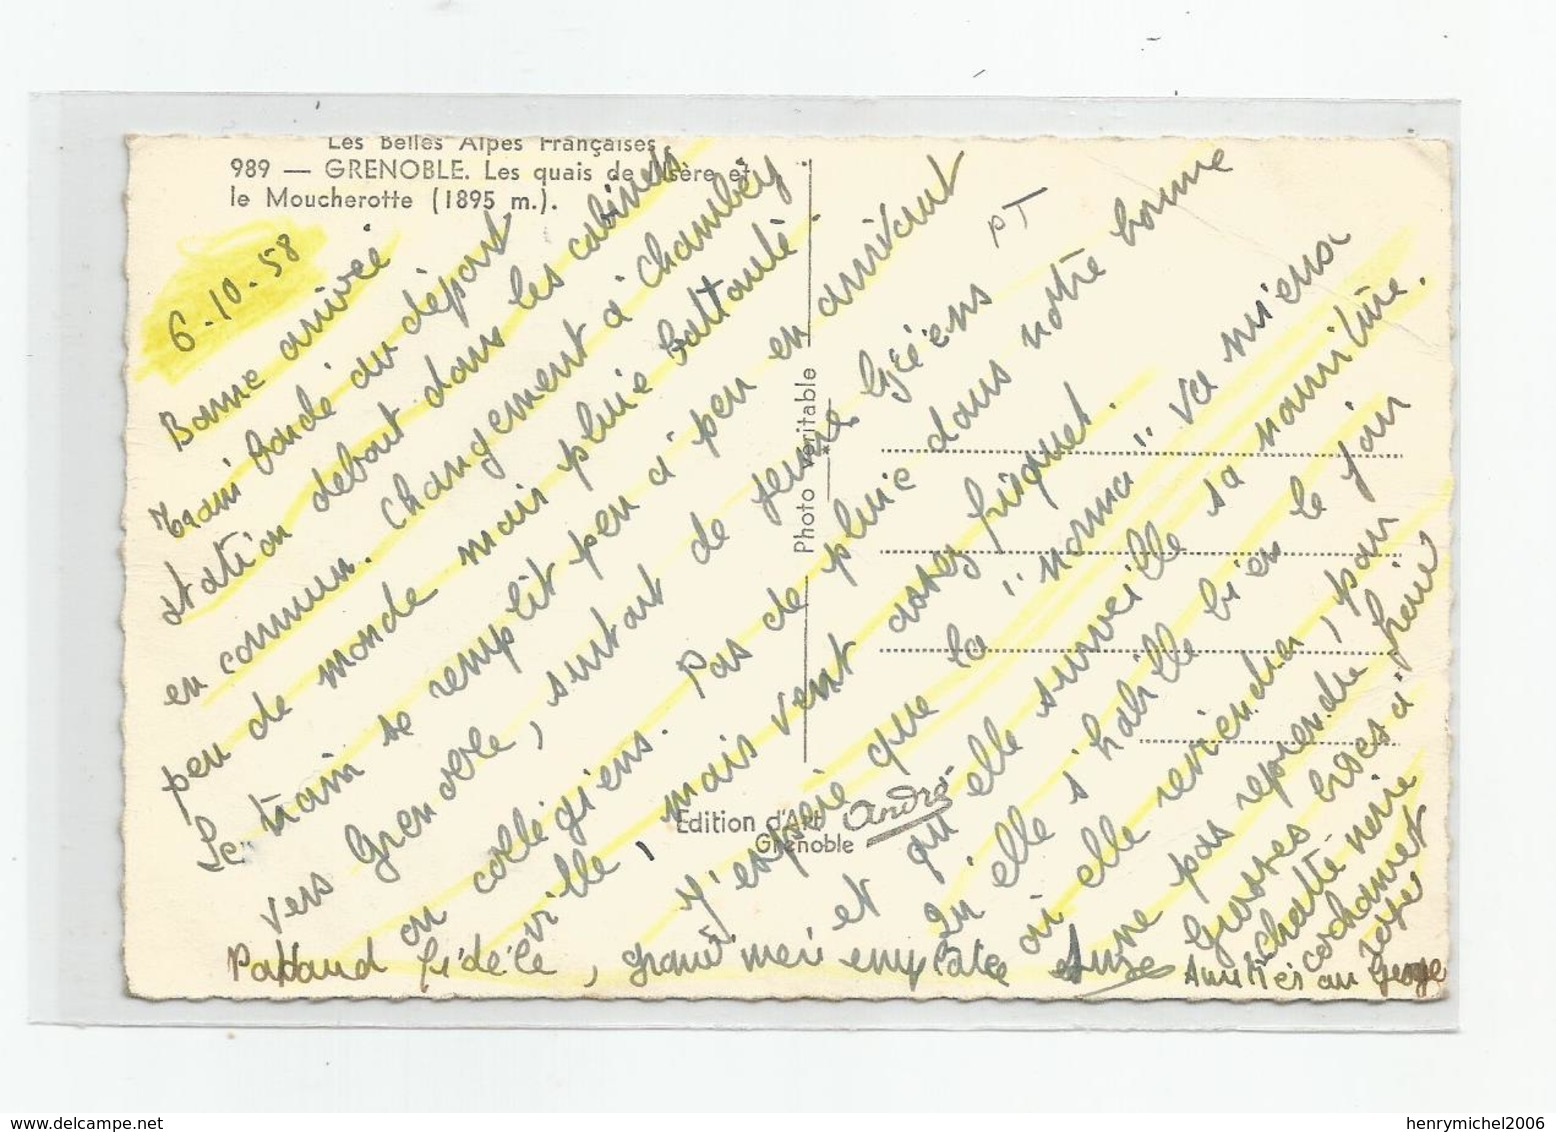 Les Belles Alpes Françaises
989 — GRENOBLE. Les quais de l'Isère et
le Moucherotte (1895 m.).
6-10-58
PT
Bonne arrivée
train bondé au départ
station debout dans les cabinets
en commun. Changement à Chambéry
peu de monde mais pluie battante.
Le train se remplit peu à peu en arrivant
vers Grenoble, surtout de jeunes lycéens
ou collégiens. Pas de pluie dans notre bonne
ville, mais vent assez frisquet.
J'espère que la "norma" va mieux
et qu'elle surveille sa nourriture.
qu'elle s'habille bien le jour
où elle reviendra, pour
ne pas reprendre
Grosses bises à
chatte noire
cochonet
rose
Pataud fidèle, grand'mère
Amitiés au George
Photo véritable
Edition d'Art
Grenoble
André
henrymichel2006